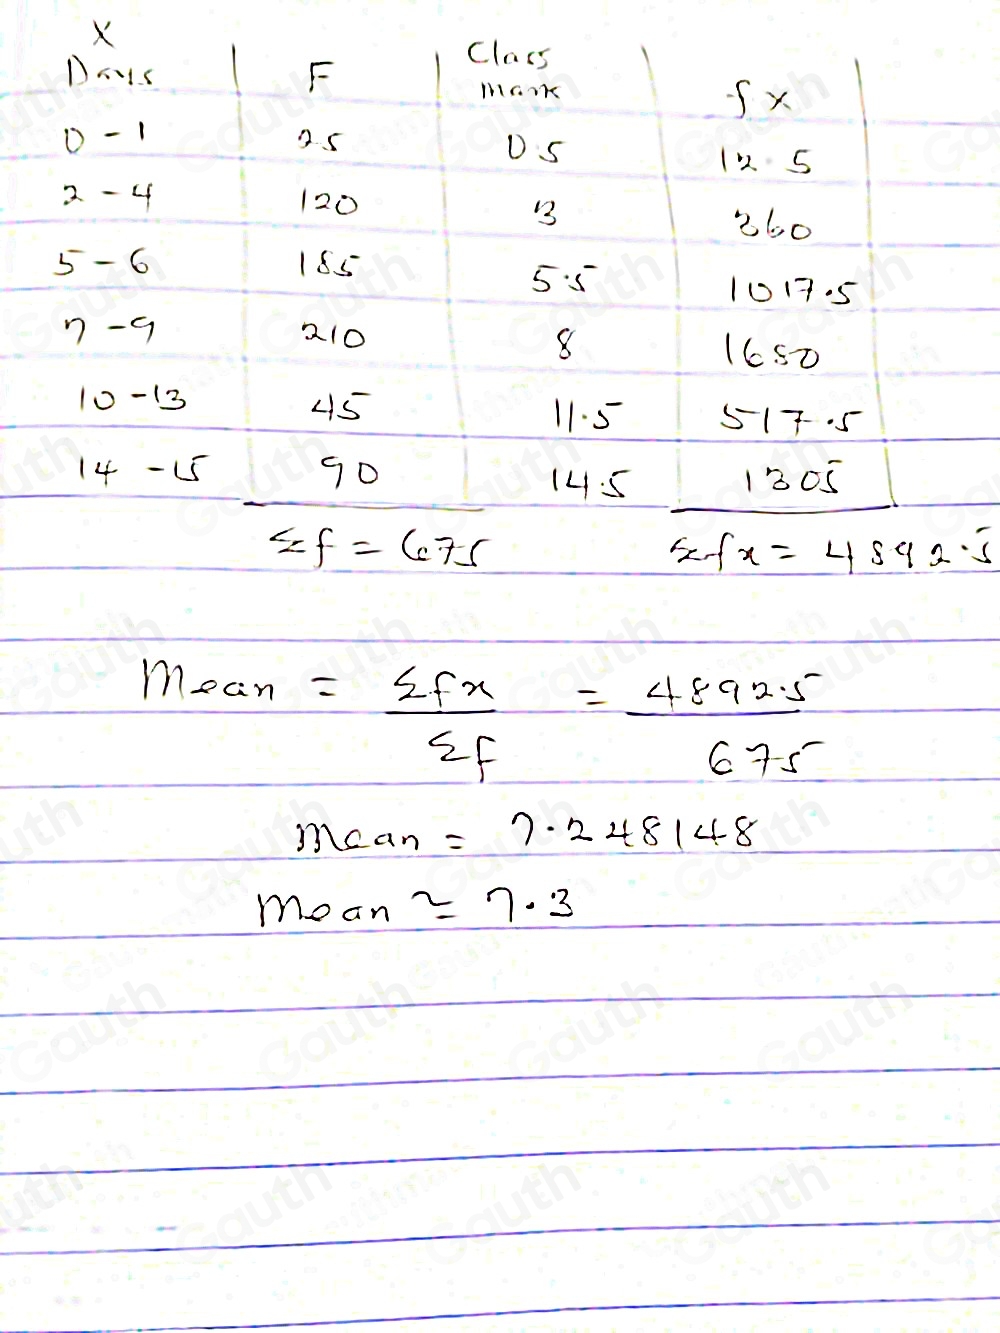 X
Days | F | Class mark | fx
0 - 1 | 25 | 0.5 | 12.5
2 - 4 | 120 | 3 | 360
5 - 6 | 185 | 5.5 | 1017.5
7 - 9 | 210 | 8 | 1680
10 - 13 | 45 | 11.5 | 517.5
14 - 15 | 90 | 14.5 | 1305
Σf = 675 Σfx = 4892.5
Mean = Σfx / Σf = 4892.5 / 675
mean = 7.248148
mean ≃ 7.3